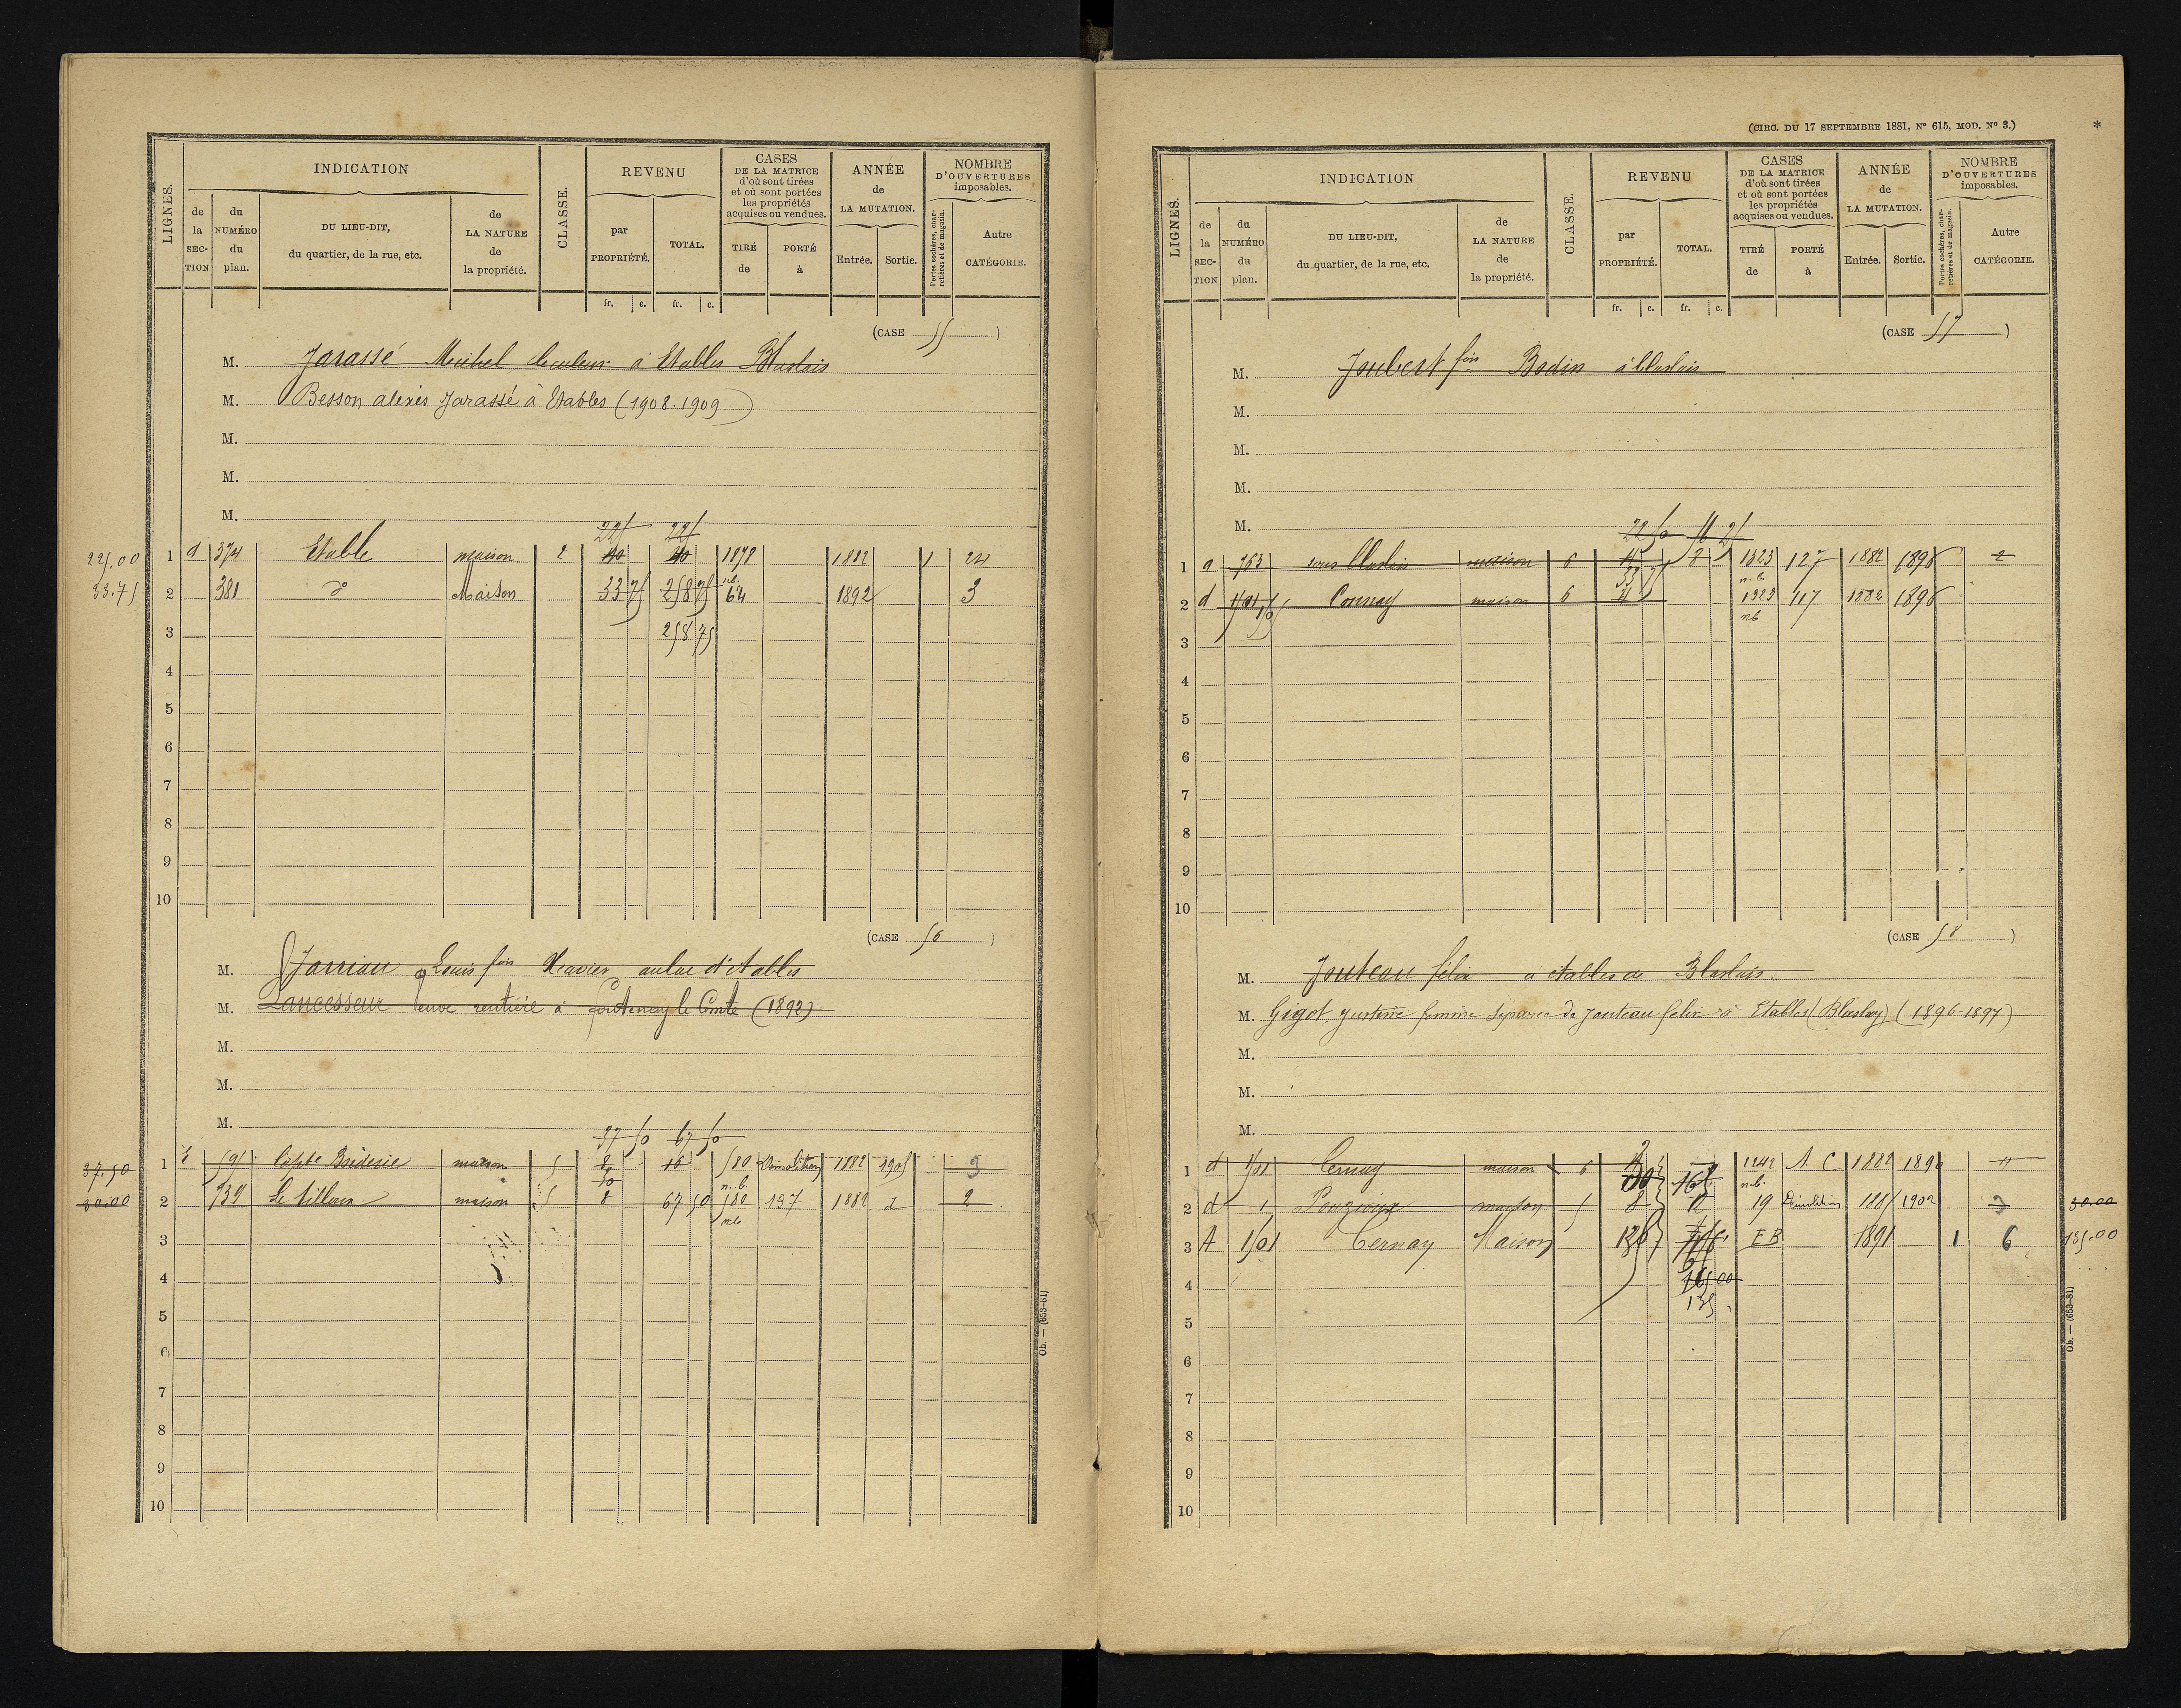 LIGNES.
INDICATION
de la SECTION
du NUMÉRO du plan.
DU LIEU-DIT, du quartier, de la rue, etc.
de LA NATURE de la propriété.
CLASSE.
REVENU
par PROPRIÉTÉ.
TOTAL.
fr. c. fr. c.
CASES DE LA MATRICE d'où sont tirées et où sont portées les propriétés acquises ou vendues.
TIRÉ de
PORTÉ à
ANNÉE de LA MUTATION.
Entrée. Sortie.
NOMBRE D'OUVERTURES imposables.
Portes cochères, charretières et de magasin.
Autre CATÉGORIE.
(CASE 55)
M. Jarassé Michel à Etables Blaslais
M. Besson alexis Jarassé à Etables (1908.1909)
M.
M.
M.
225 225
225.00 1 d 374 Etable maison 2 40 40 1878 1882 1 24
33.75 2 381 do Maison 33 75 258 75 n.b. 64 1892 3
3 258 75
4
5
6
7
8
9
10
(CASE 56)
M. Jarriau Louis fois Xavier d'Etables
M. Lancesseur veuve rentière à Fontenay le Comte (1892)
M.
M.
M.
37 50 67 50
37.50 1 591 maison 5 8 16 580 Démolition 1882 1905 3
30.00 2 739 Le tillou maison 5 30 8 67 50 n.b. 580 nb 197 1882 2
3
4
5
6
7
8
9
10
Ob. — (653-81)
(CIRC. DU 17 SEPTEMBRE 1881, N° 615, MOD. N° 3.)
*
LIGNES.
INDICATION
de la SECTION
du NUMÉRO du plan.
DU LIEU-DIT, du quartier, de la rue, etc.
de LA NATURE de la propriété.
CLASSE.
REVENU
par PROPRIÉTÉ.
TOTAL.
fr. c. fr. c.
CASES DE LA MATRICE d'où sont tirées et où sont portées les propriétés acquises ou vendues.
TIRÉ de
PORTÉ à
ANNÉE de LA MUTATION.
Entrée. Sortie.
NOMBRE D'OUVERTURES imposables.
Portes cochères, charretières et de magasin.
Autre CATÉGORIE.
(CASE 57)
M. Joubert fois Bodin à Blaslais
M.
M.
M.
M.
22 50 56 25
1 a 763 sous Blaslais maison 6 4 8 1323 n.b. 127 1882 1896 2
2 d maison 6 4 1323 nb 117 1882 1896
3
4
5
6
7
8
9
10
(CASE 58)
M. Jouteau félix à etables de Blaslais
M. Gigot Justine femme séparée de Jouteau felix à Etables (Blaslay) (1896-1897)
M.
M.
M.
1 d 1501 Cernay maison 6 2242 n.b. A C 1882 4
2 d 1 Pouzioux maison 5 8 12 19 Démolition 1885 1902 3 30.00
3 A 1501 Cernay Maison E B 1891 1 6 135.00
4 165 00
135
5
6
7
8
9
10
Ob. — (653-81)